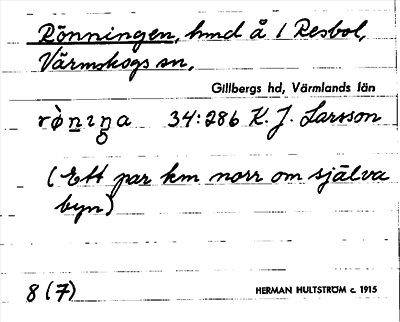 Rönningen, hmd å 1 Resbol,
Värmskogs sn,
Gillbergs hd, Värmlands län
rø̀nıṇa 34:286 K. J. Larsson
(Ett par km norr om själva
byn)
8 (7)
HERMAN HULTSTRÖM c. 1915